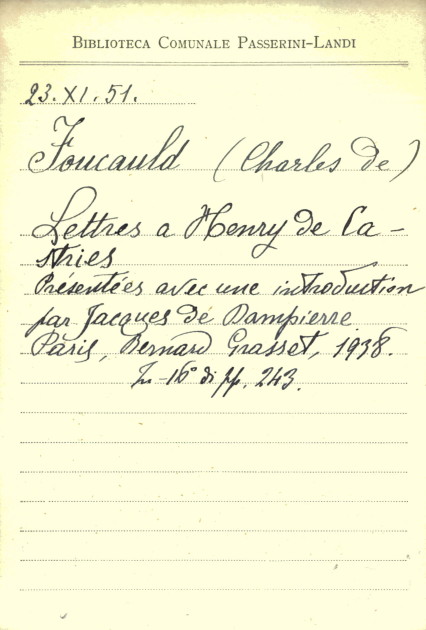 BIBLIOTECA COMUNALE PASSERINI-LANDI
23.XI.51.
Foucauld (Charles de)
Lettres a Henry de Ca-
stries
Présentées avec une introduction
par Jacques de Dampierre
Paris, Bernard Grasset, 1938.
In-16° di pp. 243.